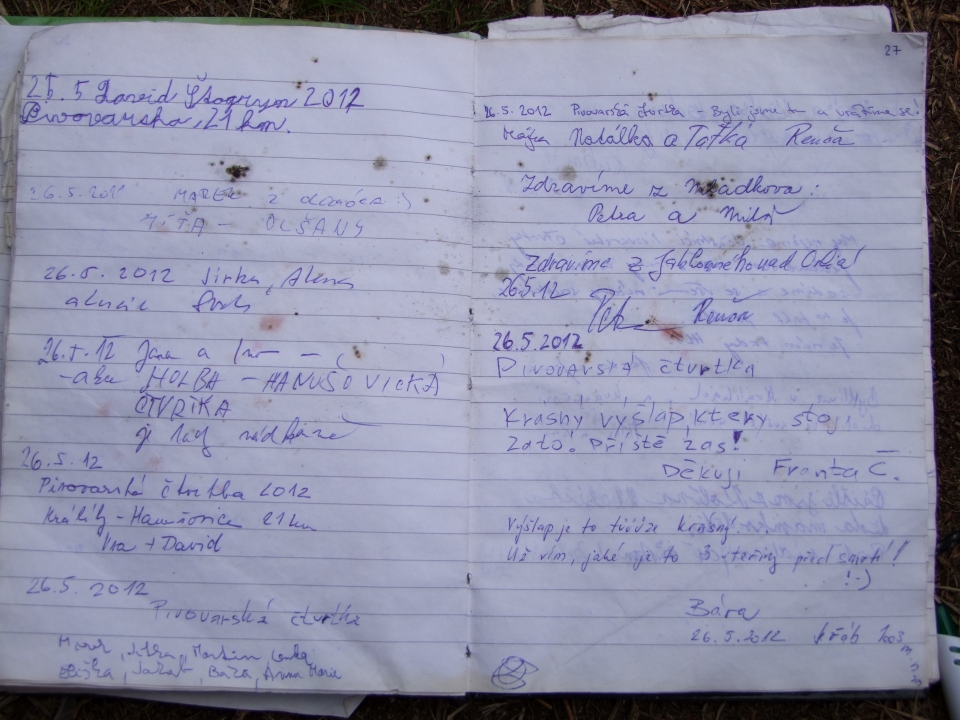 25.5 David 2012
Pivovarska 21 km.
26.5.2011 MAREK z :)
MÍTA - OLŠANY
26.5.2012 Jirka, Alena
26.5.12 Jana a
HOLBA - HANUŠOVICKÁ
ČTVRTKA
je tady nádherně
26.5.12
Pivovarská čtvrtka 2012
Králíky - Hanušovice 21 km
+ David
26.5.2012
Pivovarská čtvrtka
Jitka, Martin, Lenka
Eliška, Jakub, Bára, Anna Marie
27
26.5.2012 Pivovarská čtvrtka - Byli jsme tu a vrátíme se!
Májka Natálka a Taťka Renča
Zdravíme z Mladkova:
Petra a Miloš
Zdravíme z Jablonného nad Orlicí!
26.5.12
Petr Renča
26.5.2012
PIVOVARSKÁ čtvrtka
Krásný výšlap, který stojí
zato! Příště zas!
Děkuji Franta Č.
Výšlap je to krásný...
Už vím, jaké je to 3 vteřiny před smrtí!!
!:-)
Bára
26.5.2012 Jeřáb 1003
m.n.m